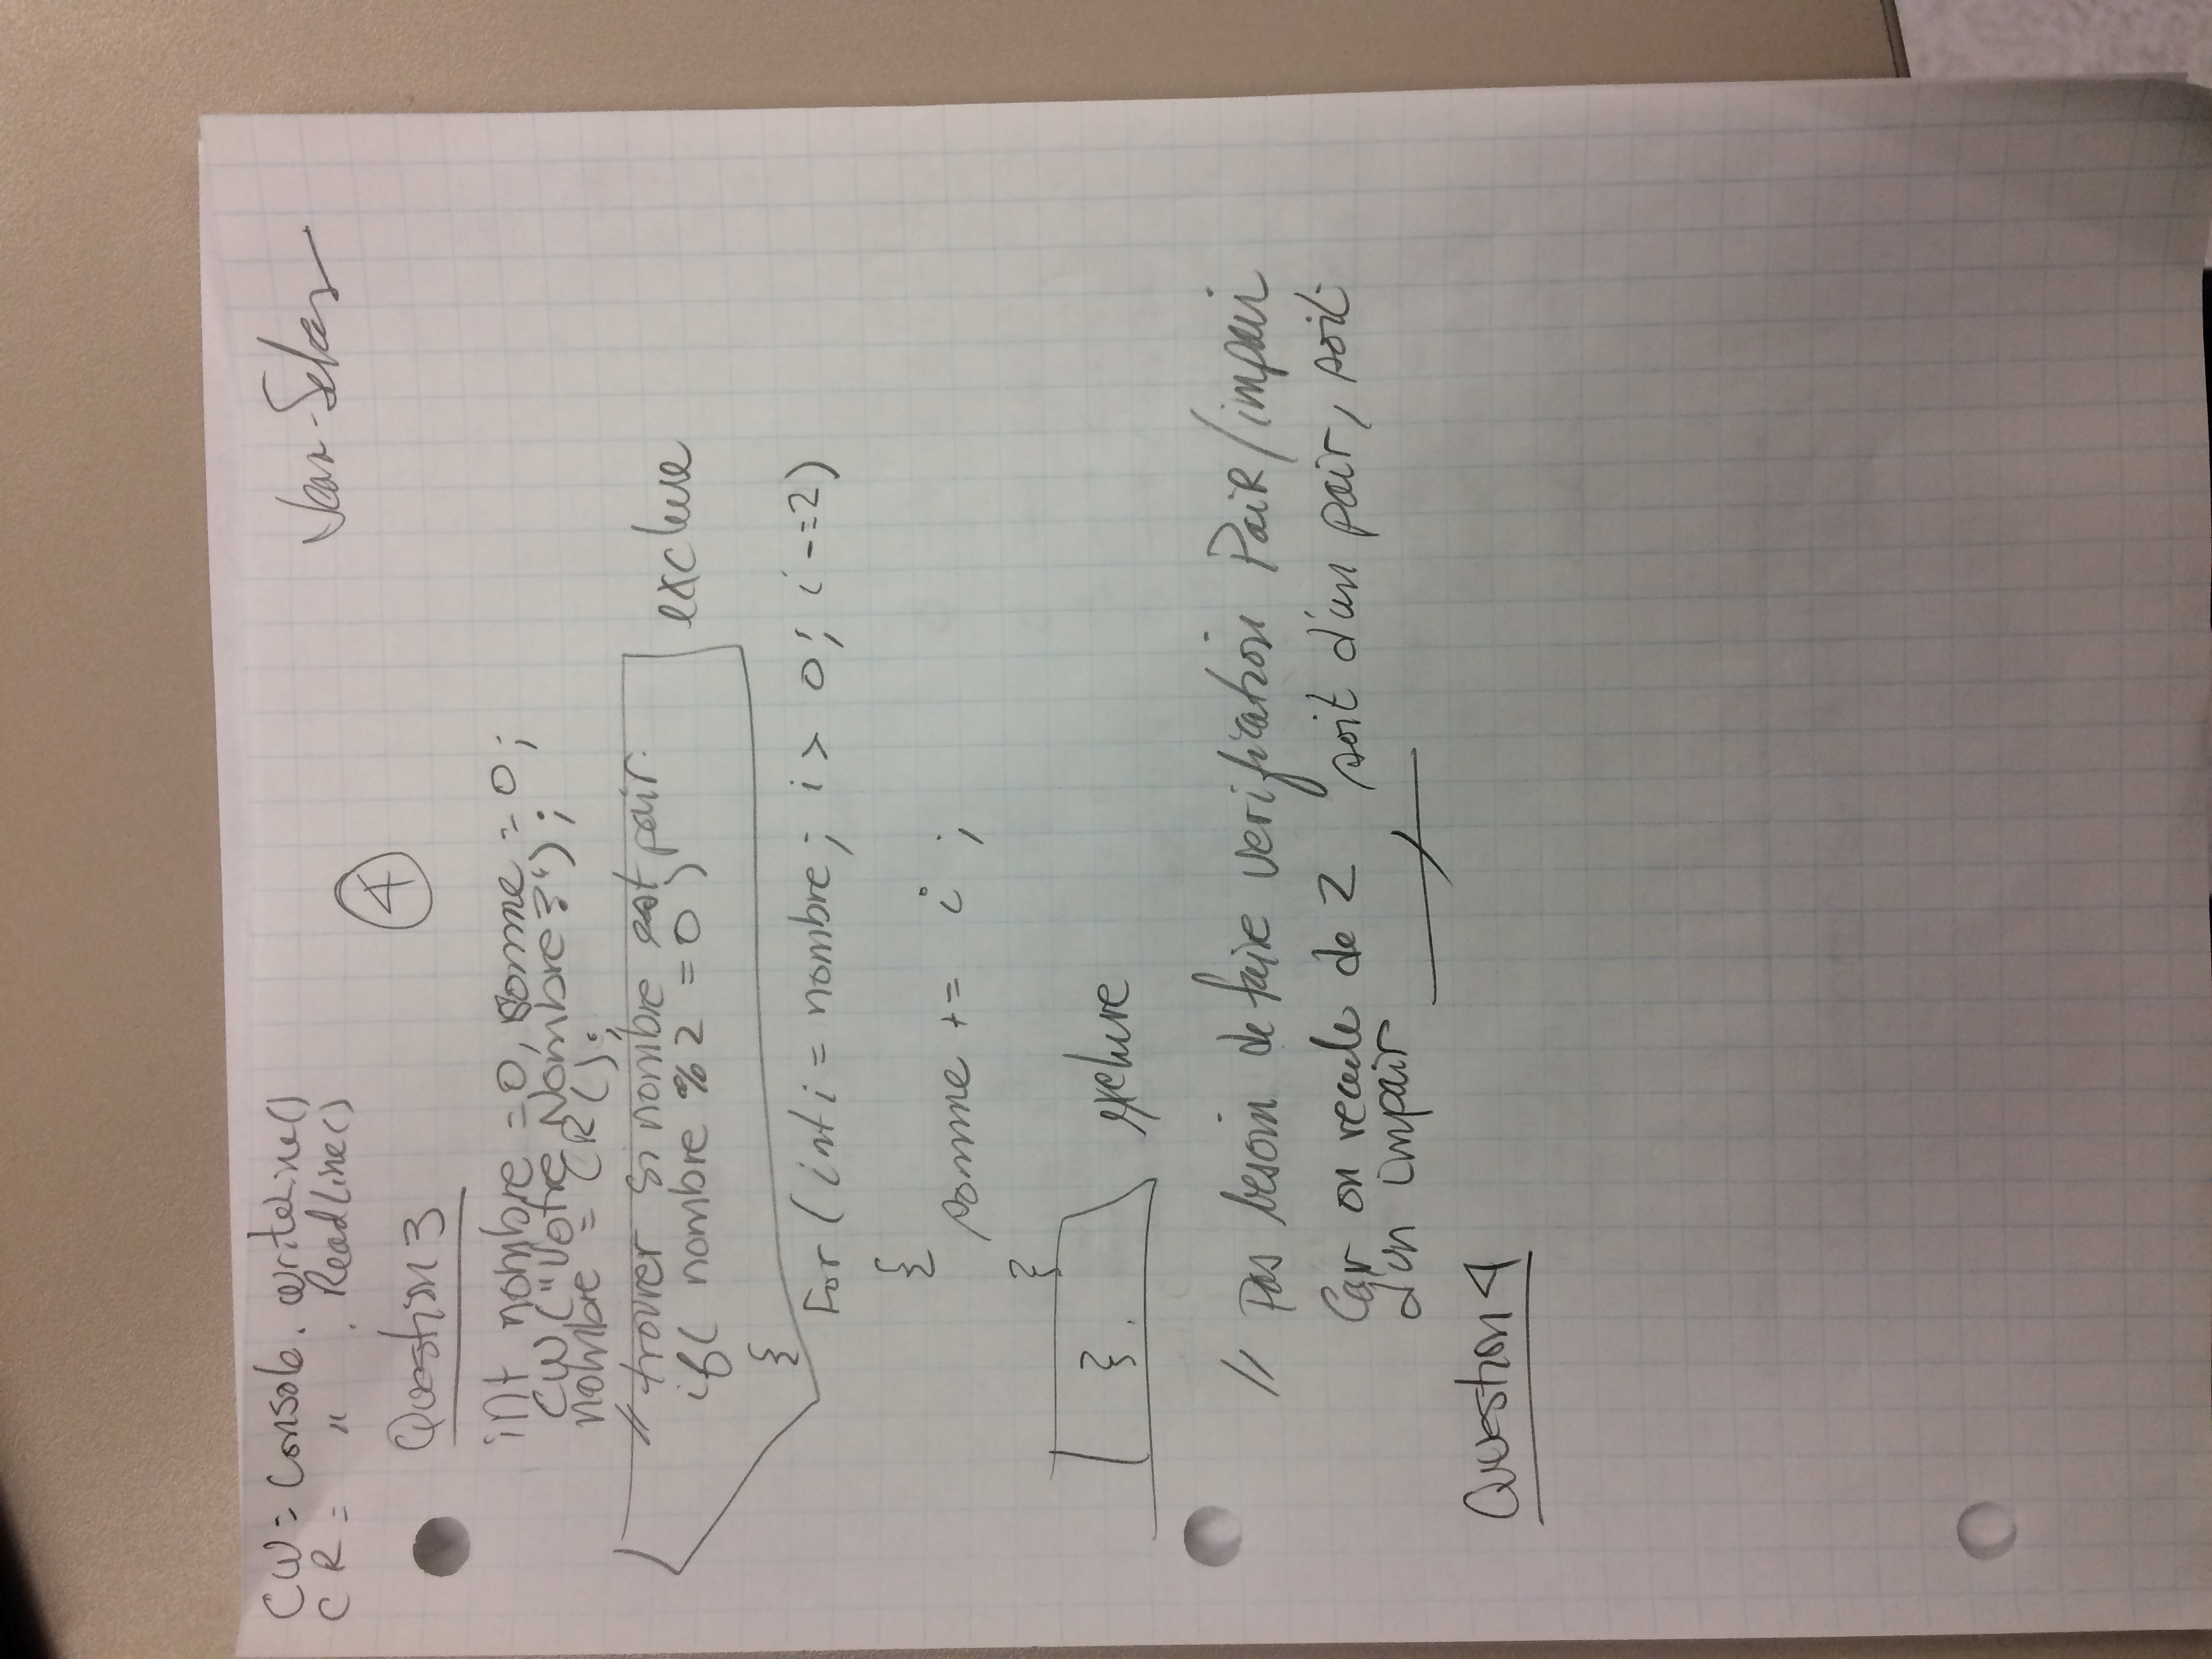 CW = Console. WriteLine()
CR = " . ReadLine()
Jean-
4
Question 3
int nombre = 0, somme = 0;
CW("Votre Nombre?");
nombre = CR();
// trouver si nombre est pair.
if( nombre % 2 = 0 )
exclure
{
For ( int i = nombre; i > 0; i -= 2)
{
somme += i ;
}
}.
exclure
// Pas besoin de faire verification Pair/impair
Car on recule de 2 soit d'un pair, soit
d'un impair
Question 4